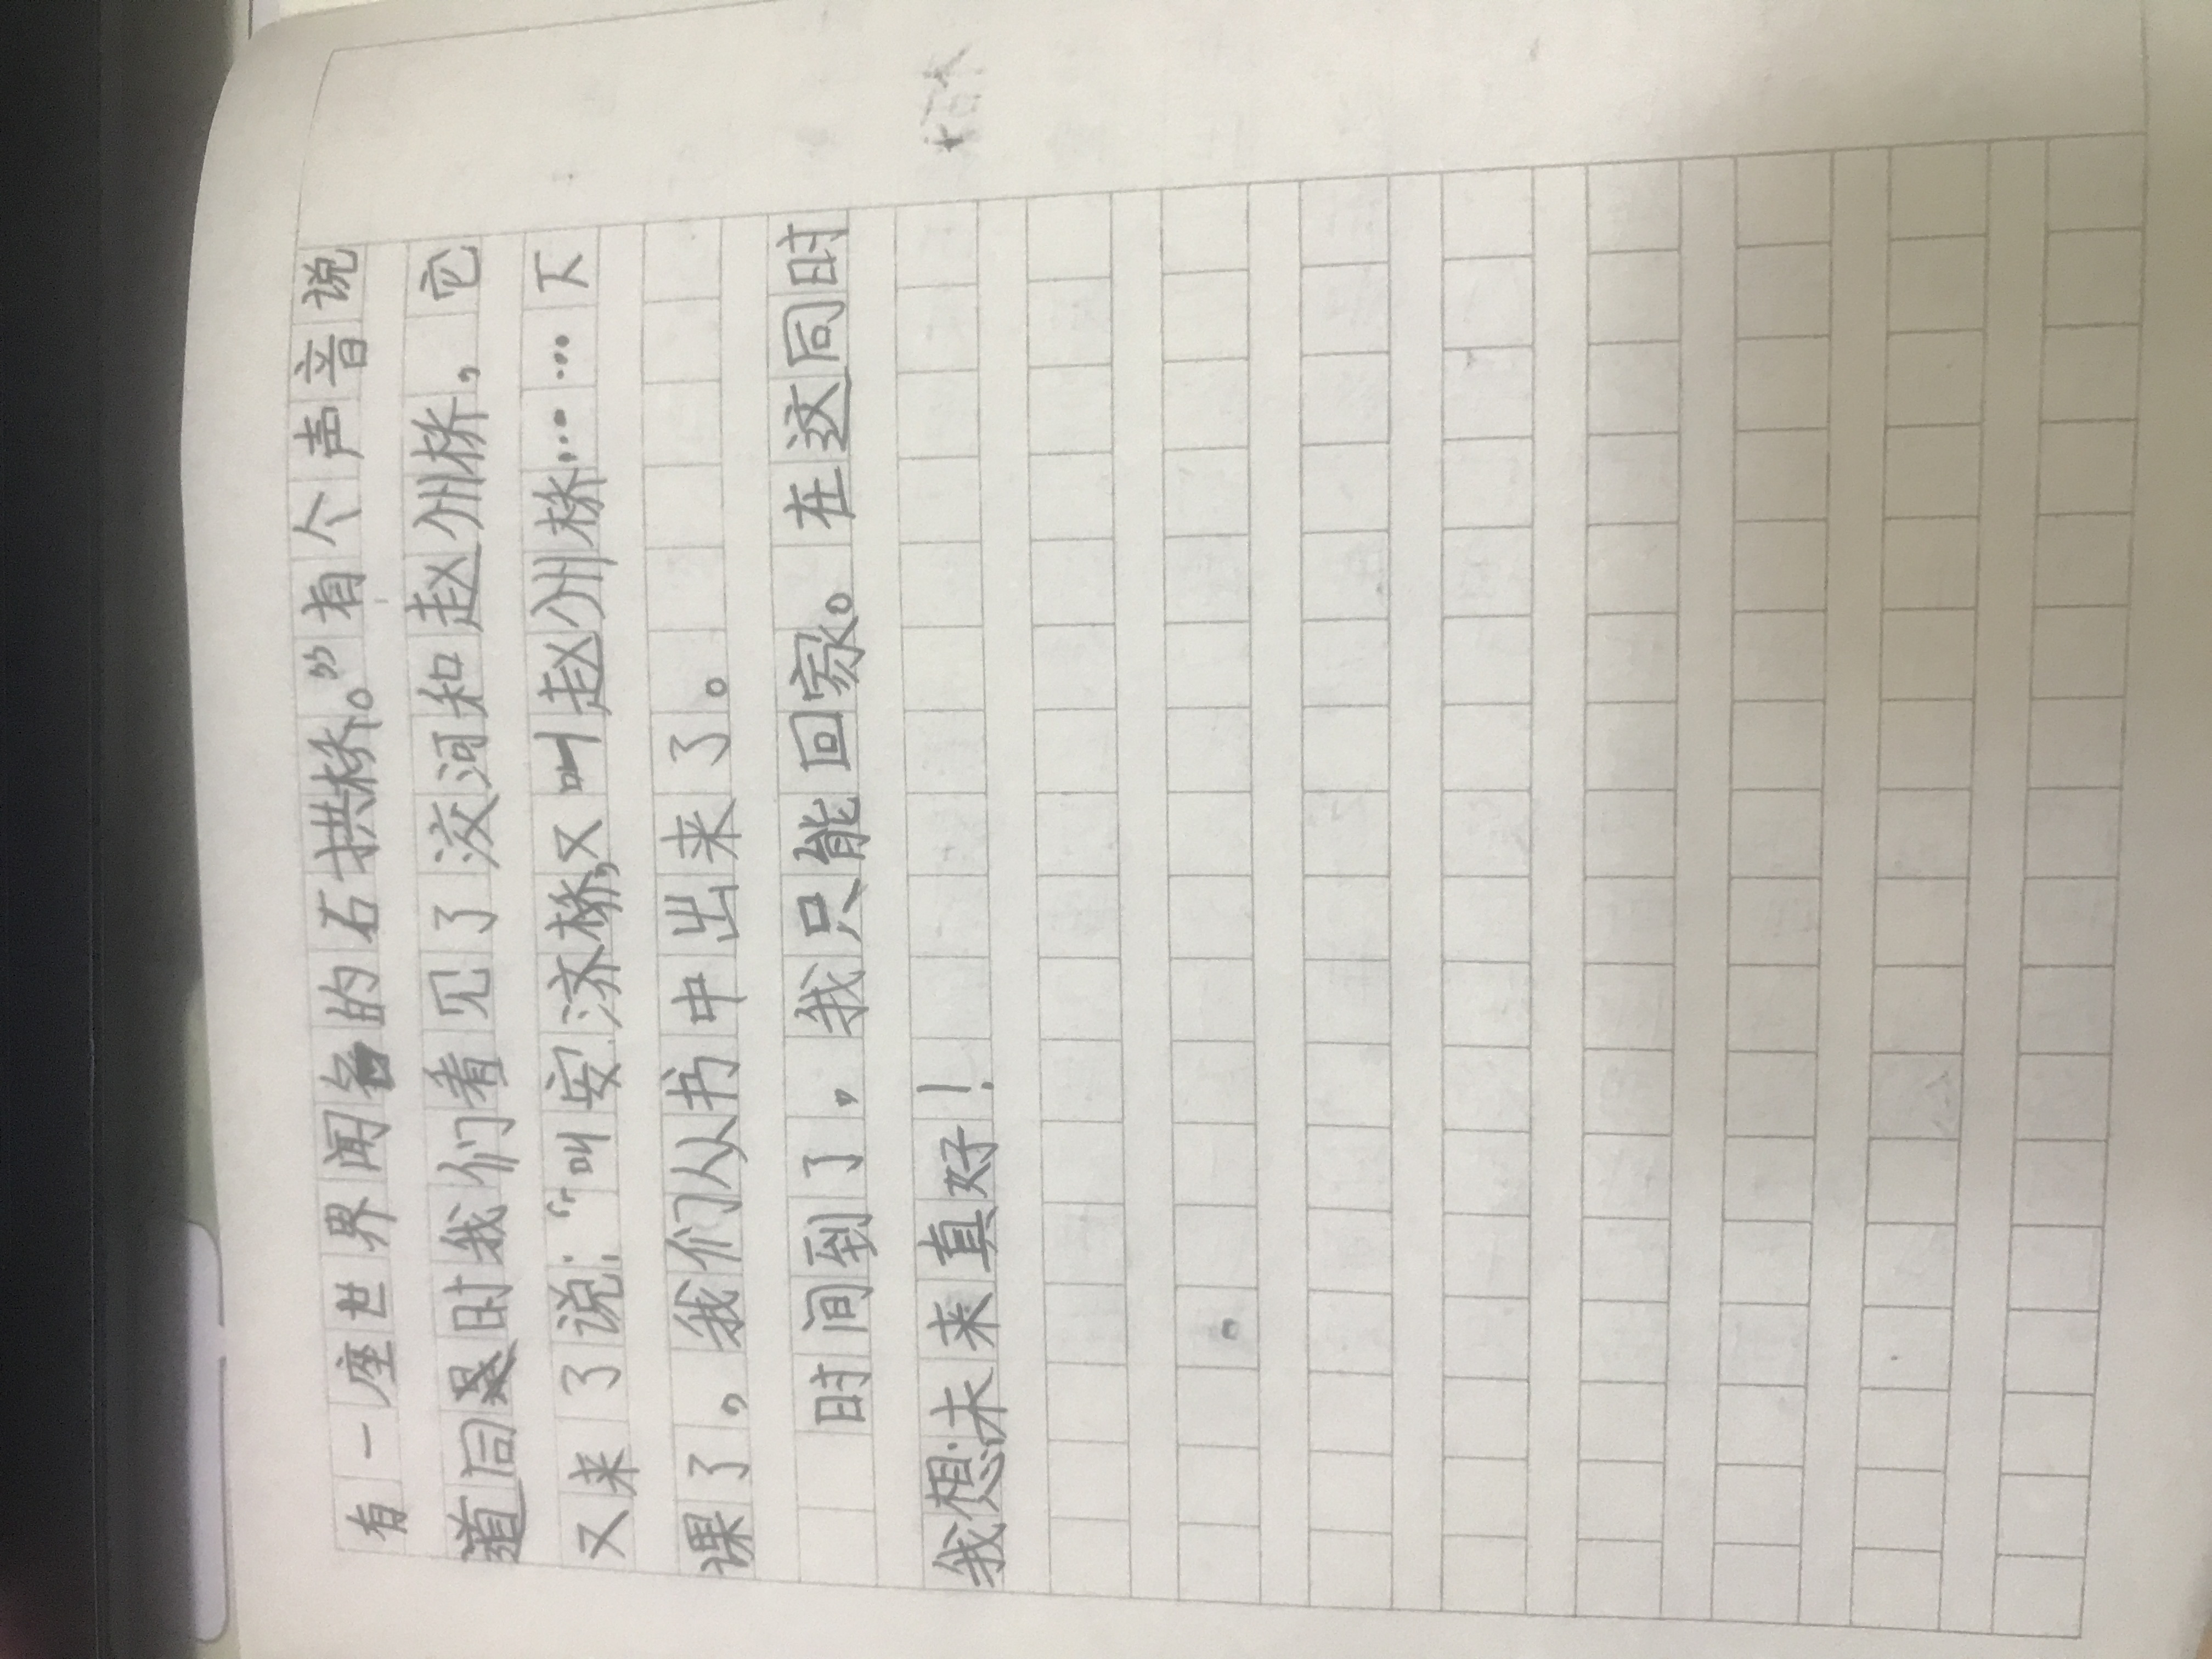 有一座世界闻名的石拱桥。”有个声音说
道同时我们看见了洨河和赵州桥，它
又来了说：“叫安济桥，又叫赵州桥，……下
课了，我们从书中出来了。
时间到了，我只能回家。在这同时
我想未来真好！